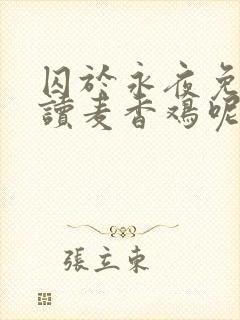 囚於永夜免
讀麦香鸡呢
張立東